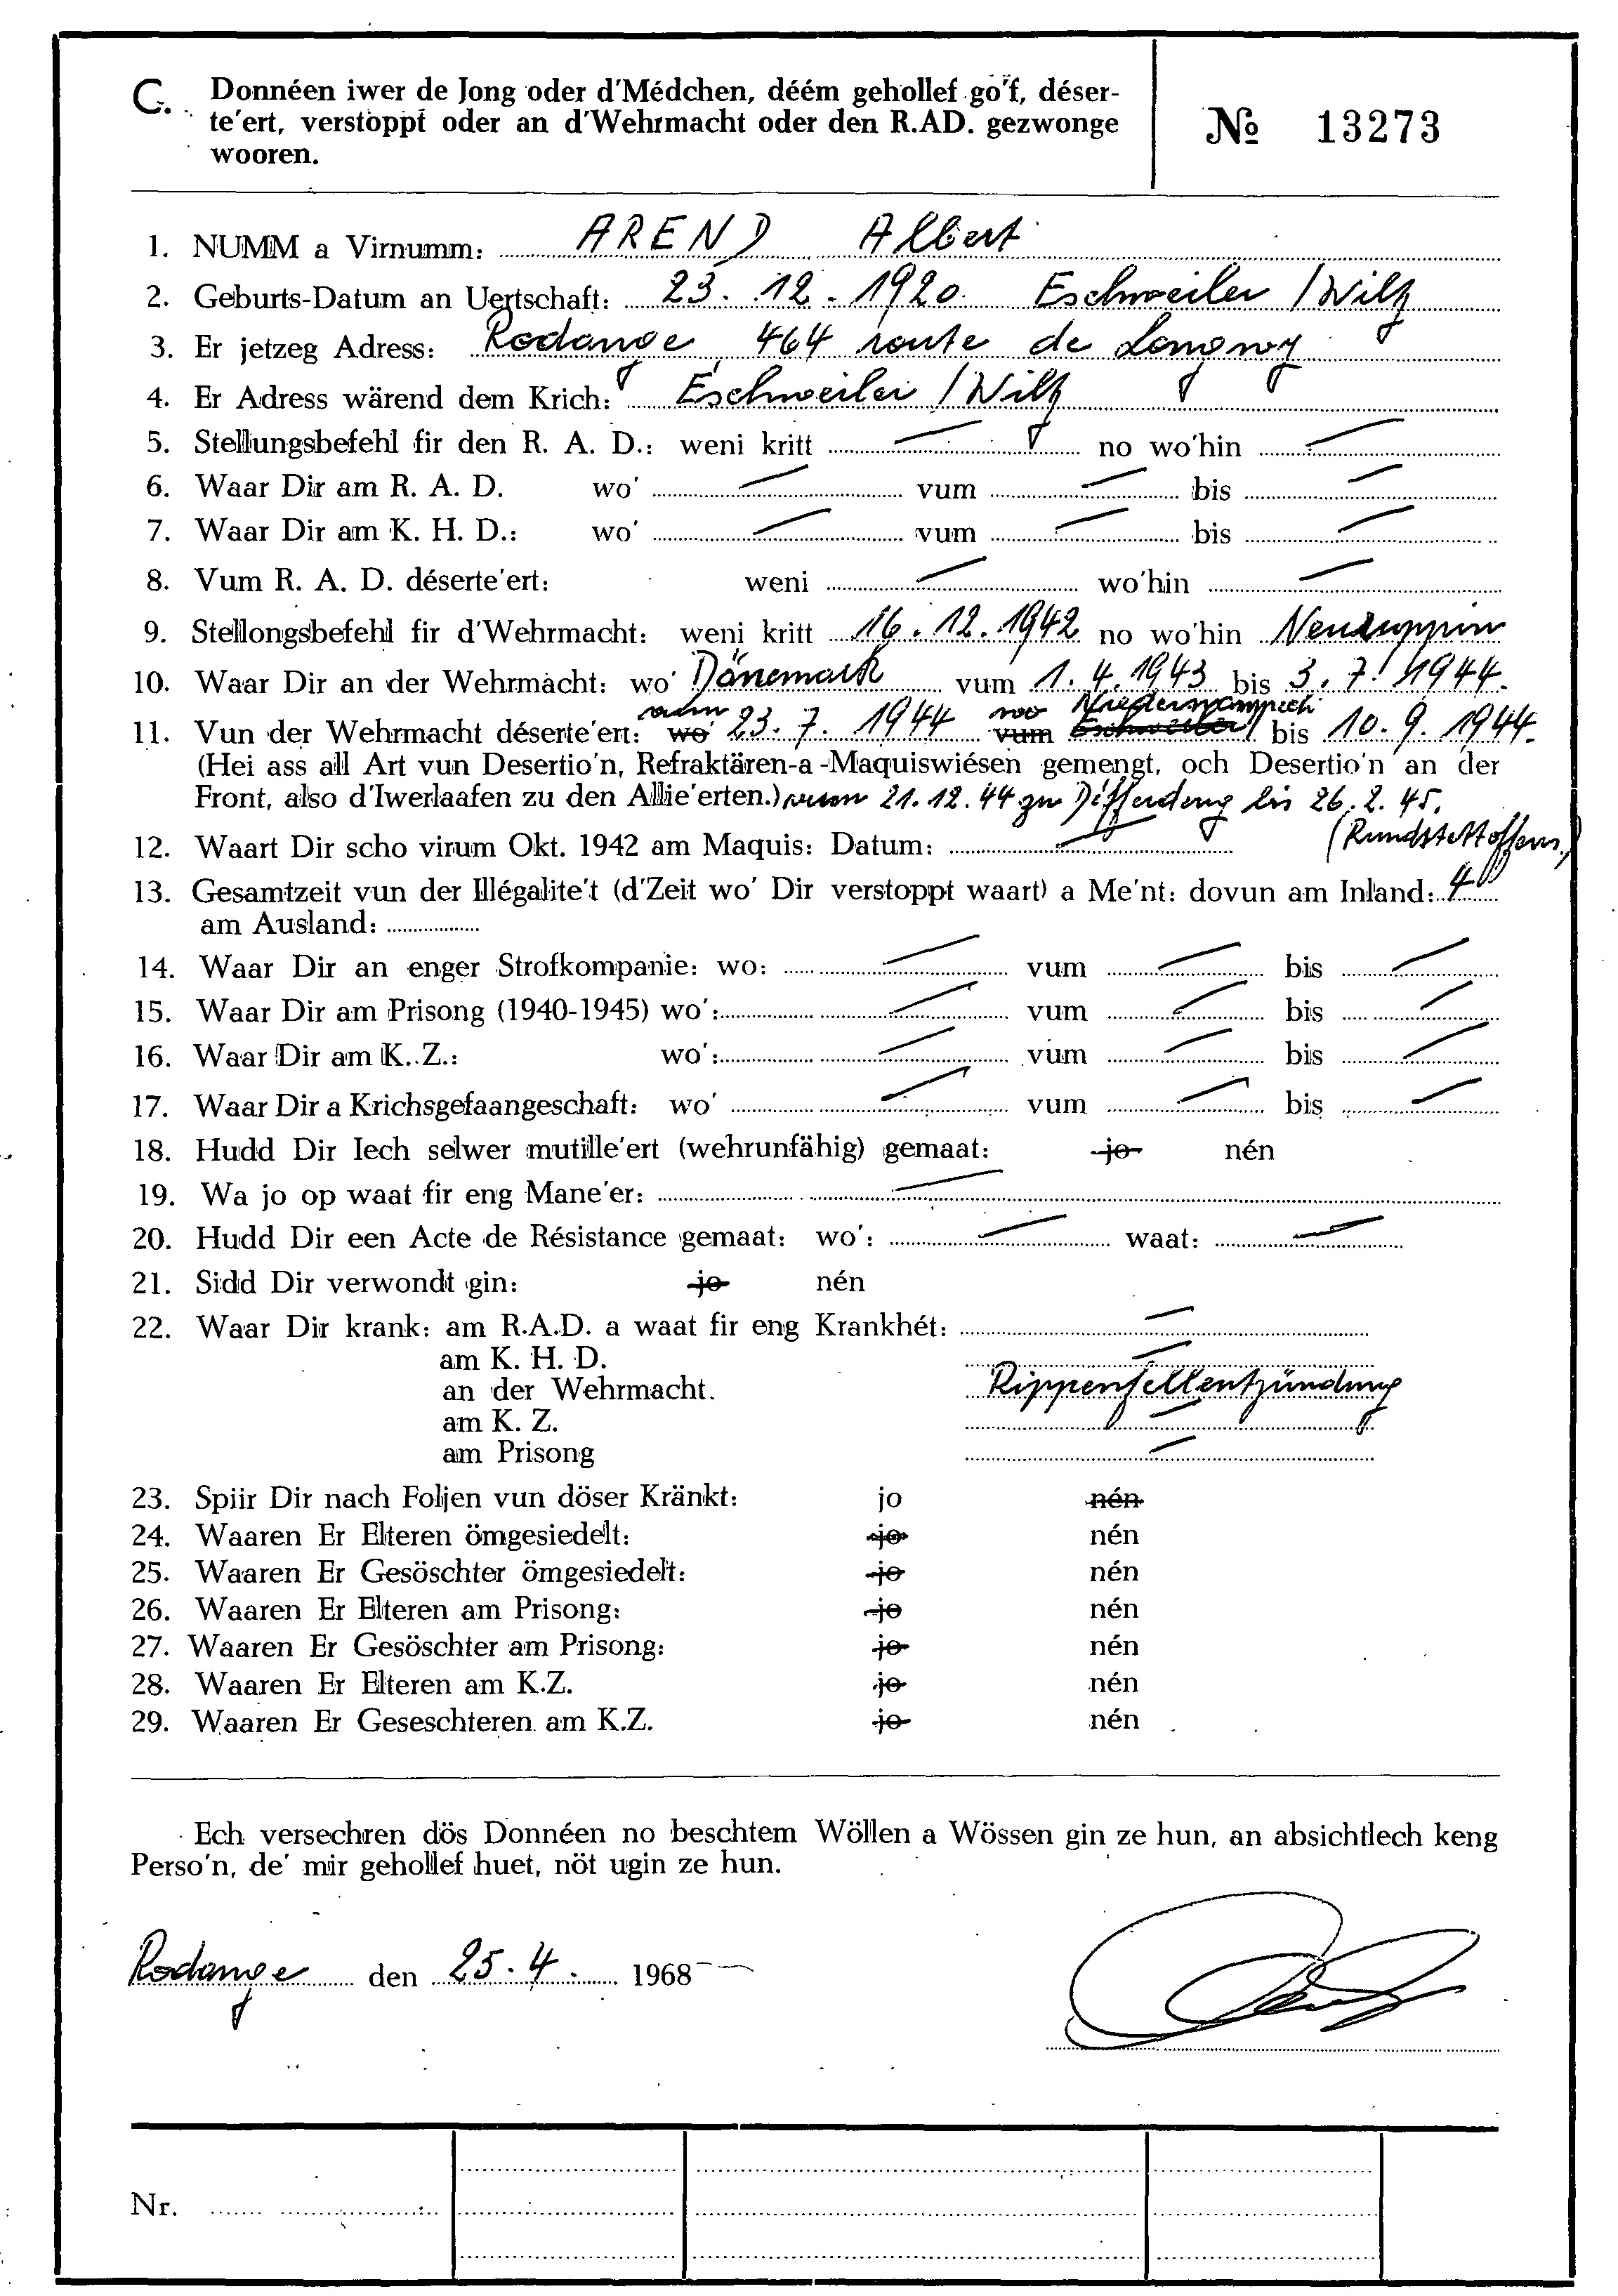 C. Donnéen iwer de Jong oder d'Médchen, déém gehollef go'f, déser-
te'ert, verstoppt oder an d'Wehrmacht oder den R.AD. gezwonge
wooren.
№ 13273
1. NUMM a Virnumm: AREND Albert
2. Geburts-Datum an Uertschaft: 23. 12. 1920 Eschweiler / Wilz
3. Er jetzeg Adress: Rodange 464 route de Longwy
4. Er Adress wärend dem Krich: Eschweiler / Wilz
5. Stellungsbefehl fir den R. A. D.: weni kritt — no wo'hin —
6. Waar Dir am R. A. D. wo' — vum — bis —
7. Waar Dir am K. H. D.: wo' — vum — bis —
8. Vum R. A. D. déserte'ert: weni — wo'hin —
9. Stellongsbefehl fir d'Wehrmacht: weni kritt 16. 12. 1942 no wo'hin Neuruppin
10. Waar Dir an der Wehrmacht: wo' Dänemark vum 1. 4. 1943 bis 3. 7. 1944.
vum wo
11. Vun der Wehrmacht déserte'ert: wo' 23. 7. 1944 vum Eschweiler bis 10. 9. 1944.
(Hei ass all Art vun Desertio'n, Refraktären-a -Maquiswiésen gemengt, och Desertio'n an der
Front, also d'Iwerlaafen zu den Allie'erten.) vum 21. 12. 44 zu Differdeng bis 26. 2. 45.
12. Waart Dir scho virum Okt. 1942 am Maquis: Datum: — (Rundstettoffens.)
13. Gesamtzeit vun der Illégalite't (d'Zeit wo' Dir verstoppt waart) a Me'nt: dovun am Inland: 4
am Ausland:
14. Waar Dir an enger Strofkompanie: wo: — vum — bis —
15. Waar Dir am Prisong (1940-1945) wo': — vum — bis —
16. Waar Dir am K. Z.: wo': — vum — bis —
17. Waar Dir a Krichsgefaangeschaft: wo' — vum — bis —
18. Hudd Dir Iech selwer mutille'ert (wehrunfähig) gemaat: jo nén
19. Wa jo op waat fir eng Mane'er: —
20. Hudd Dir een Acte de Résistance gemaat: wo': — waat: —
21. Sidd Dir verwondt gin: jo nén
22. Waar Dir krank: am R.A.D. a waat fir eng Krankhét: —
am K. H. D. —
an der Wehrmacht. Rippenfellentzündung
am K. Z. —
am Prisong —
23. Spiir Dir nach Foljen vun döser Kränkt: jo nén
24. Waaren Er Elteren ömgesiedelt: jo nén
25. Waaren Er Gesöschter ömgesiedelt: jo nén
26. Waaren Er Elteren am Prisong: jo nén
27. Waaren Er Gesöschter am Prisong: jo nén
28. Waaren Er Elteren am K.Z. jo nén
29. Waaren Er Geseschteren am K.Z. jo nén
Ech versechren dös Donnéen no beschtem Wöllen a Wössen gin ze hun, an absichtlech keng
Perso'n, de' mir gehollef huet, nöt ugin ze hun.
Rodange den 25. 4. 1968
Nr.